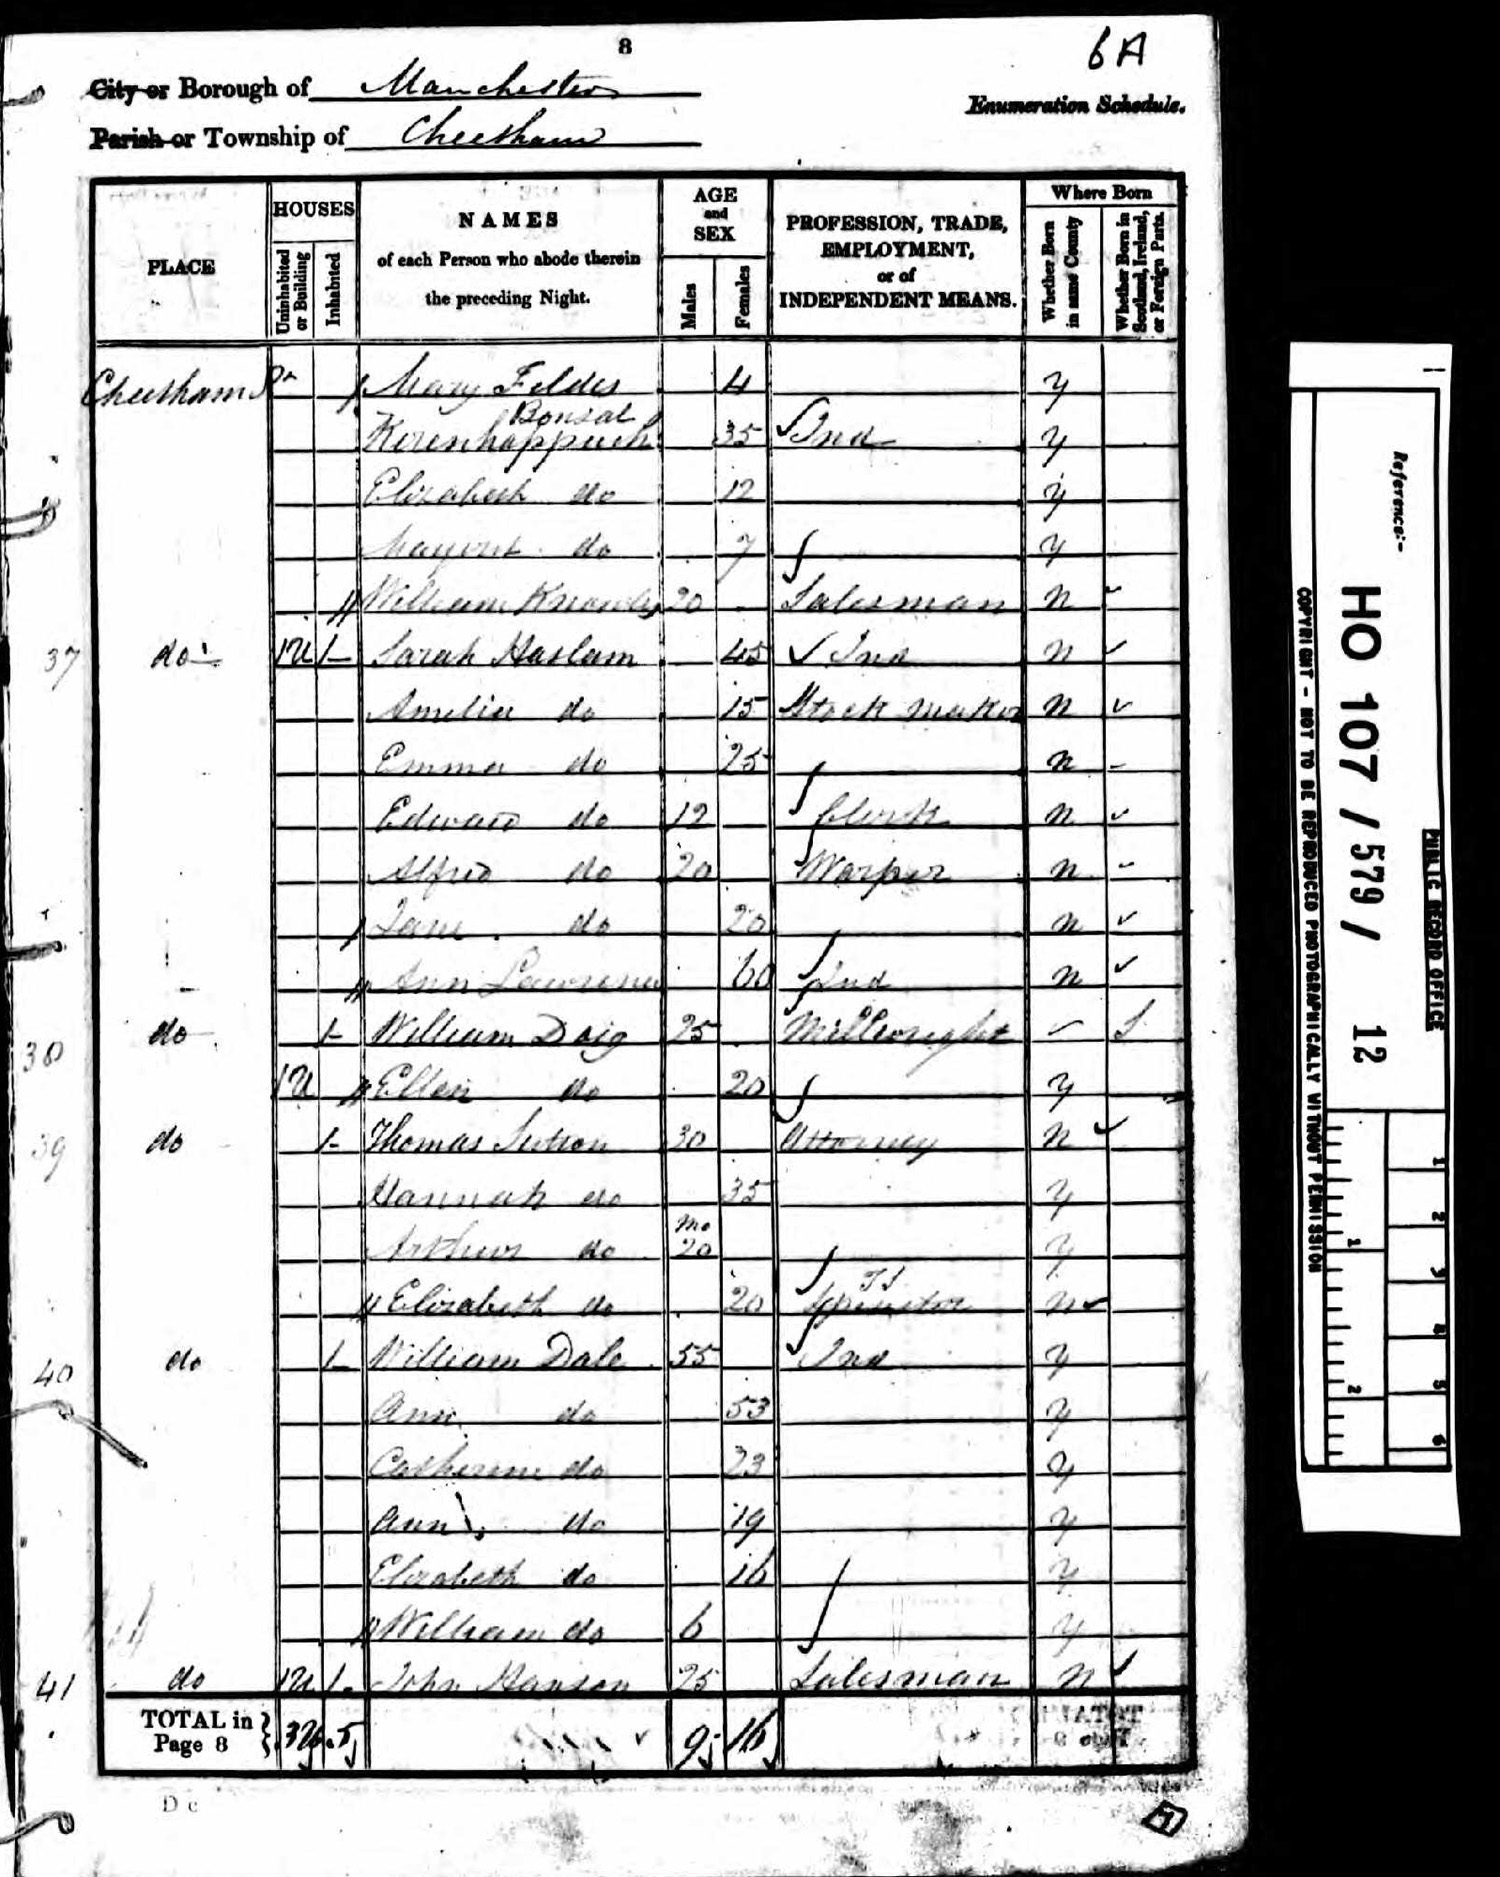 8
6A
City or Borough of Manchester
Enumeration Schedule.
Parish or Township of Cheetham
PLACE
HOUSES
Uninhabited or Building
Inhabited
NAMES
of each Person who abode therein
the preceding Night.
AGE
and
SEX
Males
Females
PROFESSION, TRADE,
EMPLOYMENT,
or of
INDEPENDENT MEANS.
Where Born
Whether Born in same County
Whether Born in Scotland, Ireland, or Foreign Parts.
Cheetham Mary Feldes 4 y
Bonsal
Kerenhappuch 35 Ind y
Elizabeth do 12 y
do 7 y
William Knowles 20 Salesman n
37 do 1U 1 Sarah Haslam 45 Ind n
Amelia do 15 Stock maker n
Emma do 25 n
Edward do 12 Clerk n
Alfred do 20 Warper n
Jane do 20 n
Ann Lawrence 60 Ind n
38 do 1 William Doig 25 Millwright S
1U Ellen do 20 y
39 do 1 Thomas Sutton 30 Attorney n
Hannah do 35 y
Mo
Arthur do 20 y
Elizabeth do 20 n
40 do 1 William Dale 55 Ind y
Ann do 53 y
Catherine do 23 y
Ann do 19 y
Elizabeth do 16 y
William do 6 y
41 do 1U 1 John Hanson 25 Salesman n
TOTAL in
Page 8 3U 5 9 16
D c
Reference:-
HO 107 / 579 / 12
PUBLIC RECORD OFFICE
COPYRIGHT - NOT TO BE REPRODUCED PHOTOGRAPHICALLY WITHOUT PERMISSION
1
2
3
4
5
6
1
2